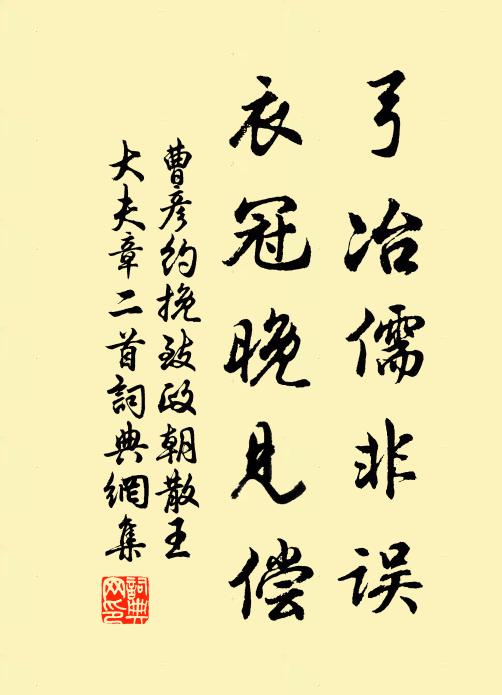 弓冶儒非误
衣冠晚见偿
曹彦约挽致政朝散王
大夫章二首詞典網集
詞典網印